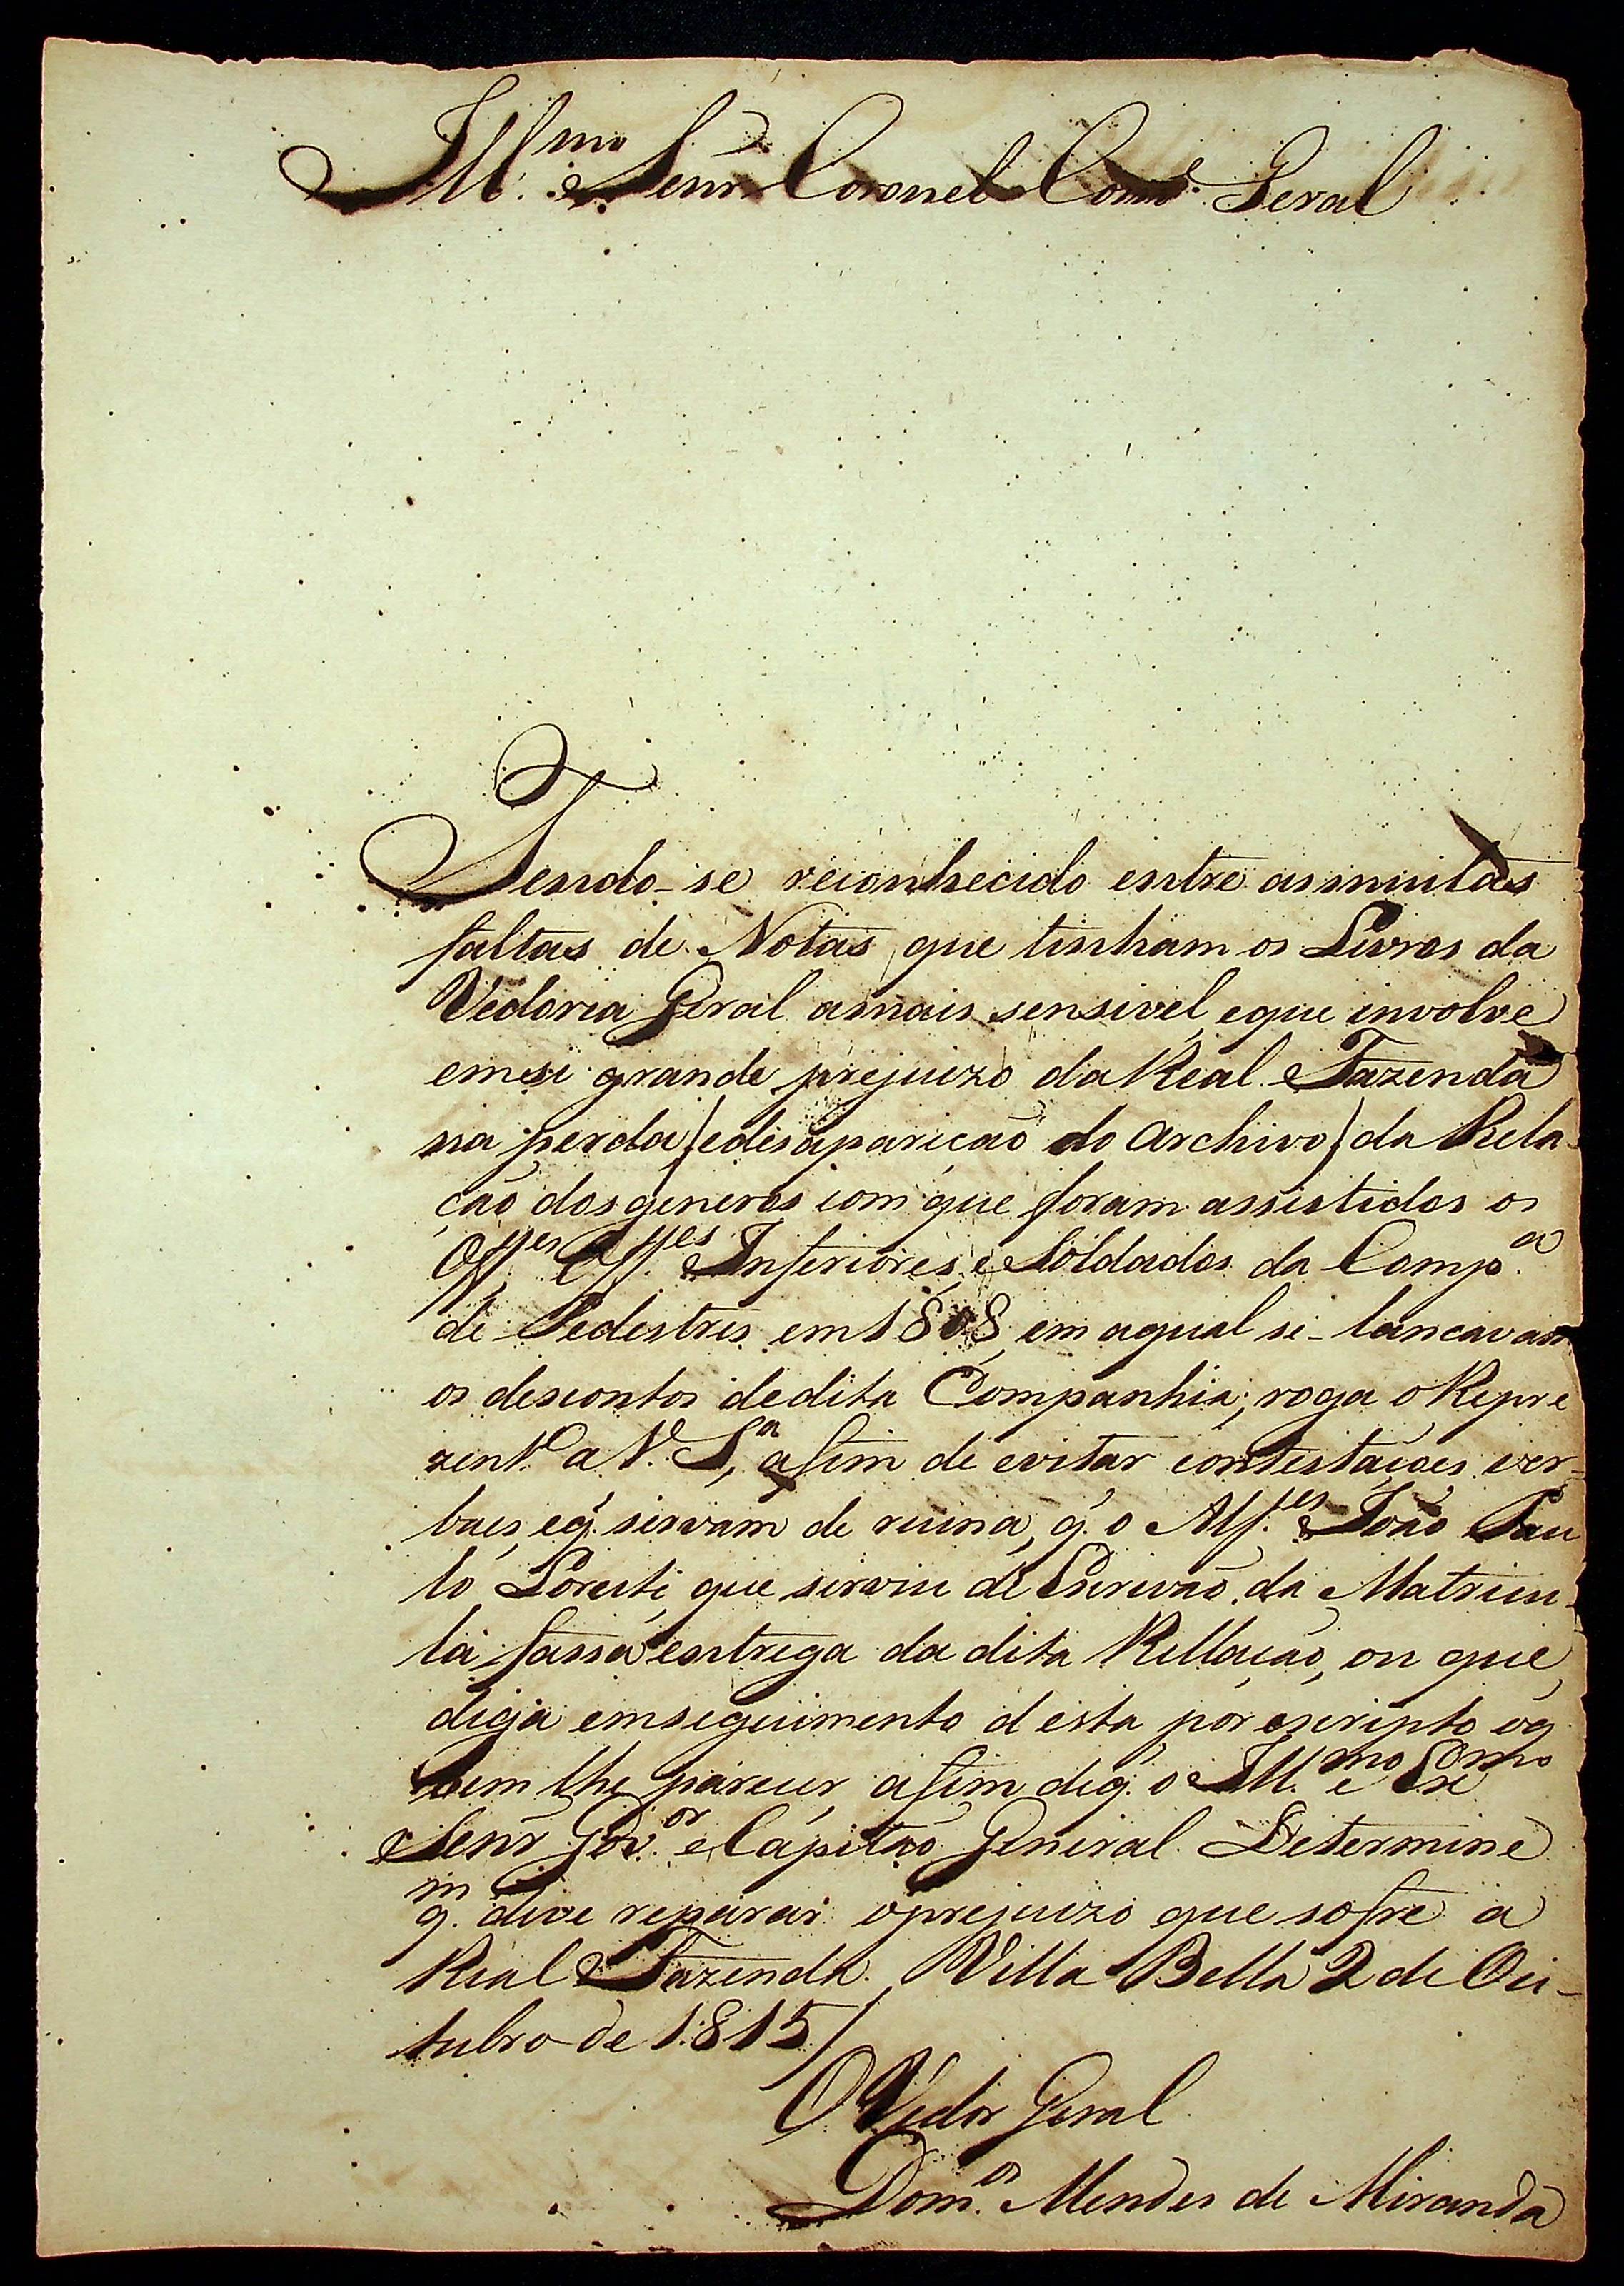 Ill.mo Senr. Coronel Com.e Geral
Tendo-se reconhecido entre asmuitas
faltas de Notas, que tinham os Livros da
Vedoria Geral amais sensivel, eque involve
emsi grande prejuizo da Real Fazenda
na perda (edesapariçaõ do Archivo) da Rela-
çaõ dosgeneros com que foram assistidos os
Off.es Off.es Inferiores, e Soldados da Comp.a
de Pedestres em 1808, em aqual se-lancavam
os descontos dedita Companhia; roga o Repre
zent.e a V. S.a, afim de evitar contestaçoes ver-
baes, eq. sirvam de ruina, q. o Alf.es Joaõ Pau
lo Loreti, que serviu de Escrivaõ da Matricu-
la fassa entrega da dita Rellaçaõ, ou que
diga emseguimento desta por escripto oq.
bem lhe parecer, afim deq. o Ill.mo e Ex.mo
Senr Gov.or e Capitaõ General Determine
q.m deve reparar oprejuizo que sofre a
Real Fazenda. Villa Bella 2 de Ou-
tubro de 1815/
O Vedor Geral
Dom.os Mendes de Miranda